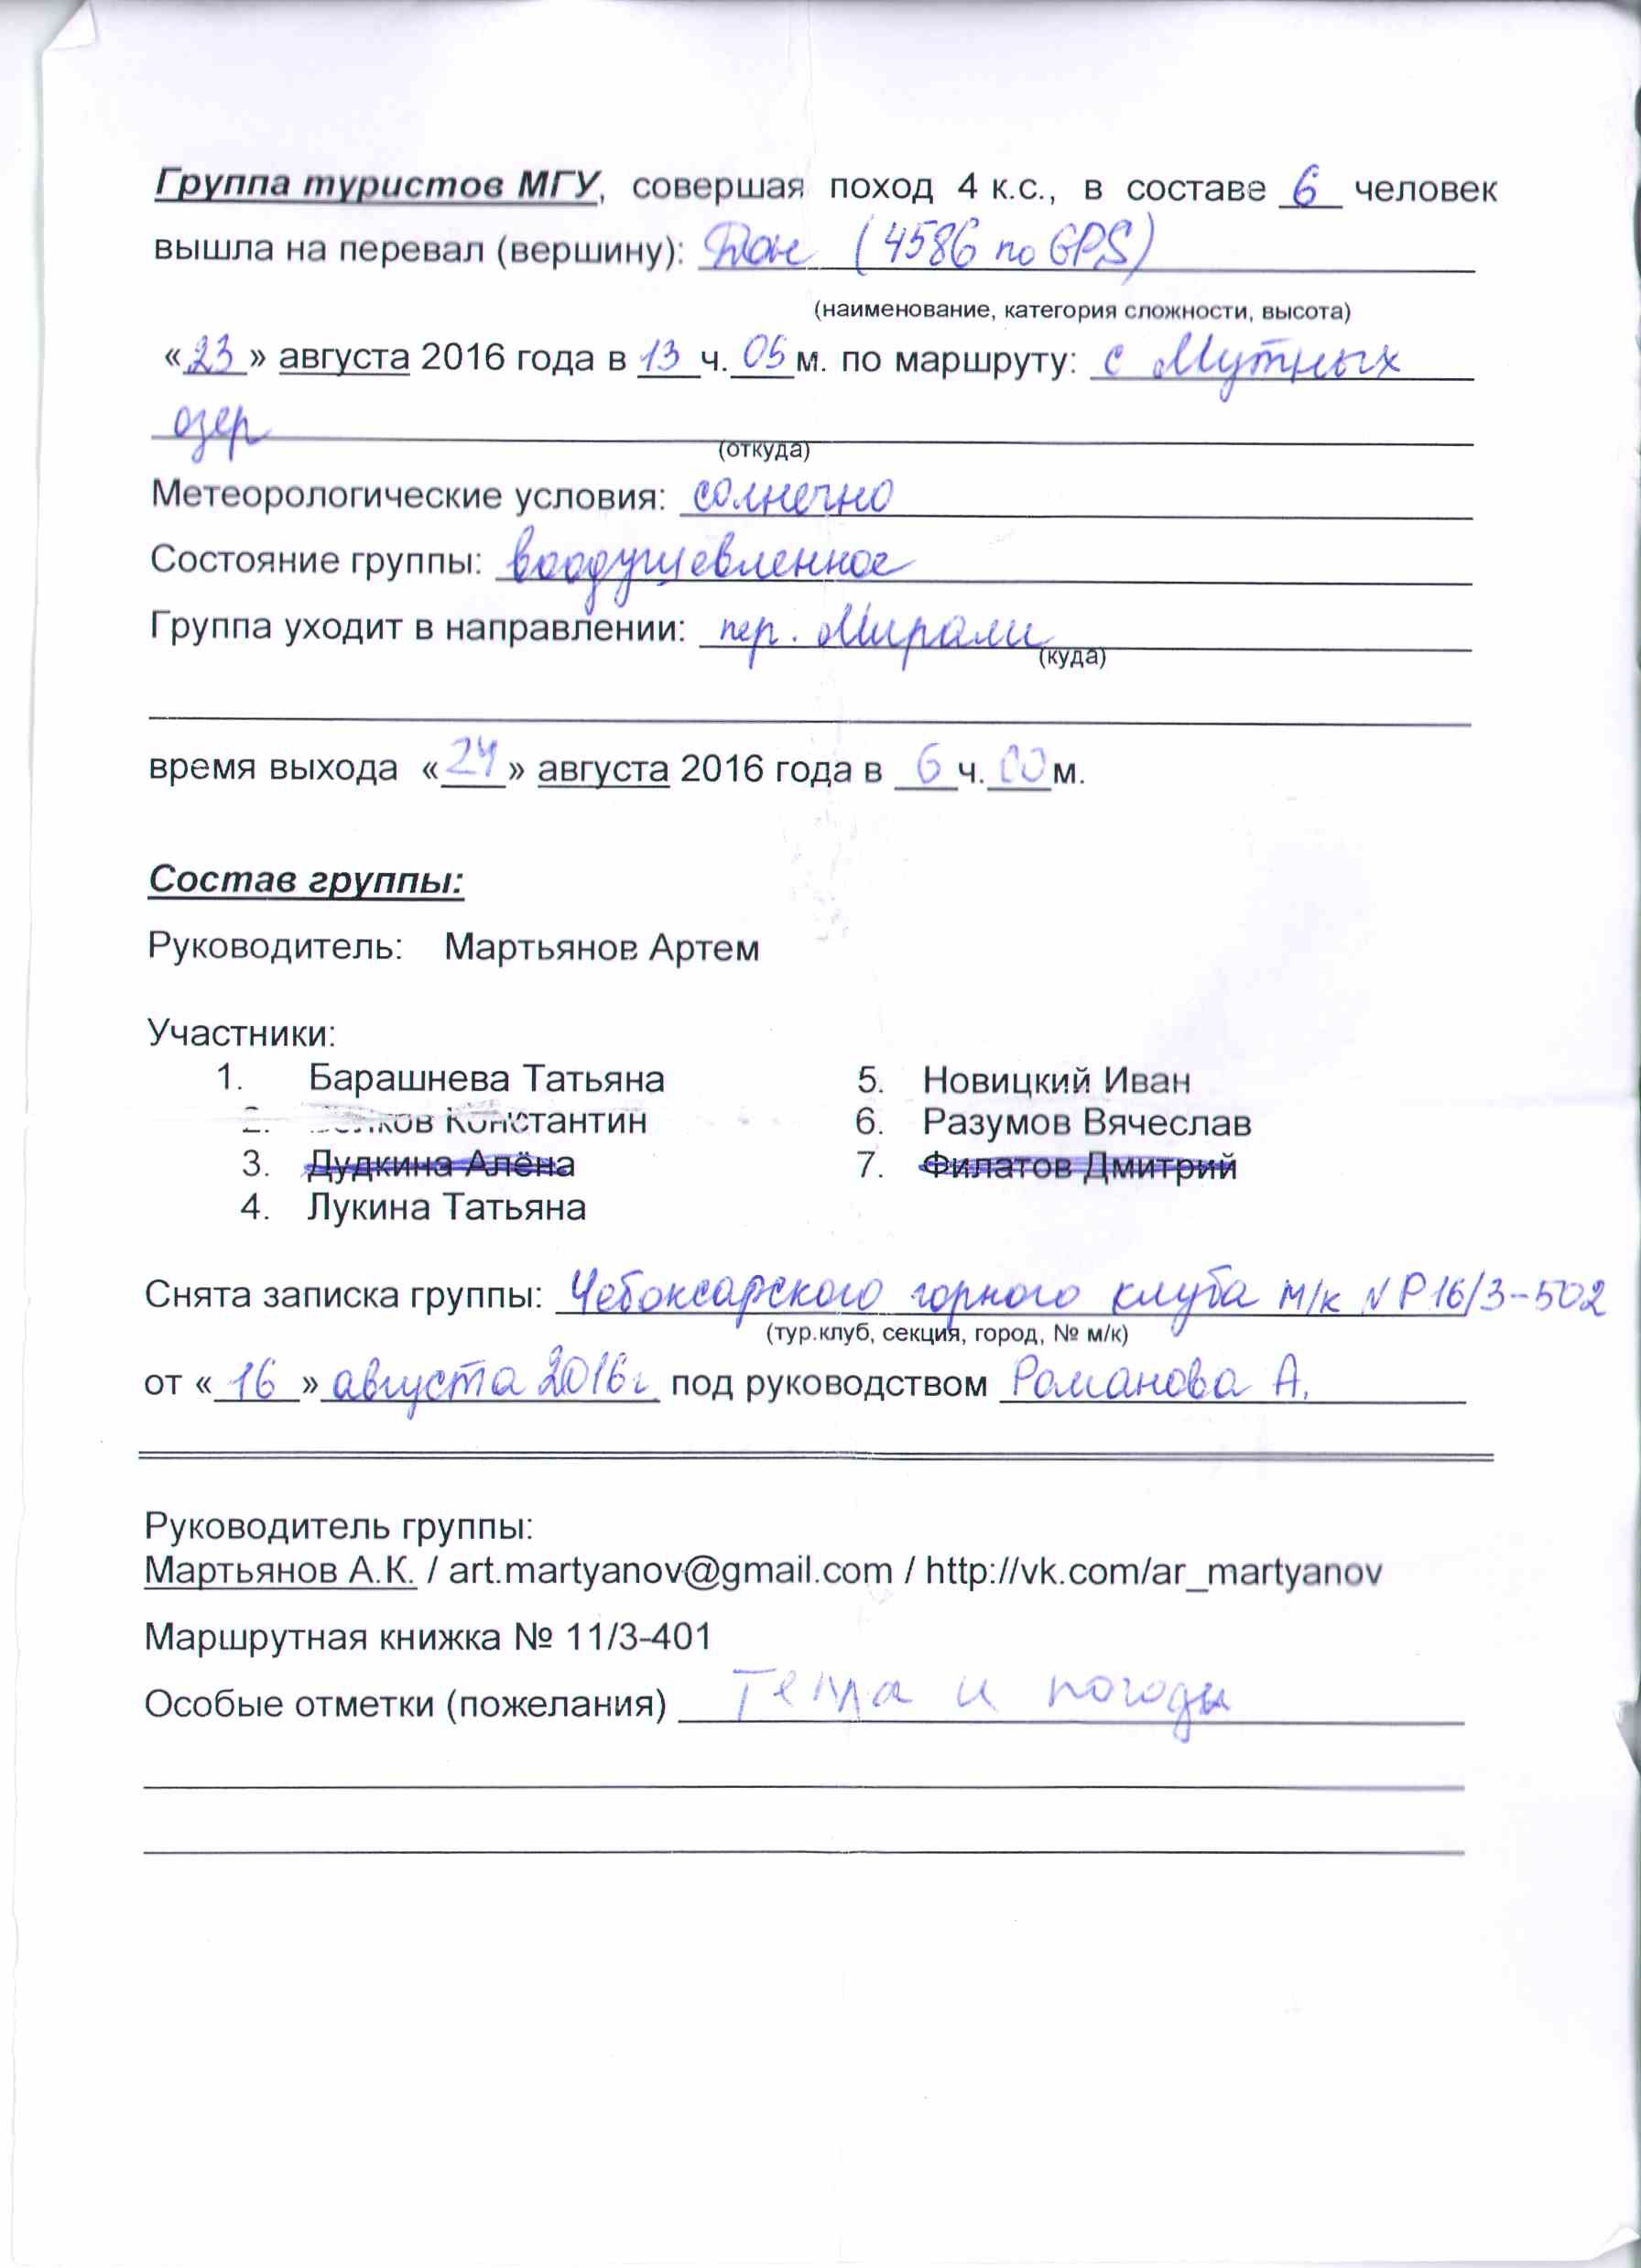 Группа туристов МГУ, совершая поход 4 к.с., в составе 6 человек
вышла на перевал (вершину): (4586 по GPS)
(наименование, категория сложности, высота)
«23» августа 2016 года в 13 ч. 05 м. по маршруту: с Мутных
озер
(откуда)
Метеорологические условия: солнечно
Состояние группы: воодушевленное
Группа уходит в направлении: пер. Мирали
(куда)
время выхода «24» августа 2016 года в 6 ч. 00 м.
Состав группы:
Руководитель: Мартьянов Артем
Участники:
1. Барашнева Татьяна
2. Константин
3. Дудкина Алёна
4. Лукина Татьяна
5. Новицкий Иван
6. Разумов Вячеслав
7. Филатов Дмитрий
Снята записка группы: Чебоксарского горного клуба м/к N Р16/3-502
(тур.клуб, секция, город, № м/к)
от «16» августа 2016г. под руководством Романова А.
Руководитель группы:
Мартьянов А.К. / art.martyanov@gmail.com / http://vk.com/ar_martyanov
Маршрутная книжка № 11/3-401
Особые отметки (пожелания) Тепла и погоды